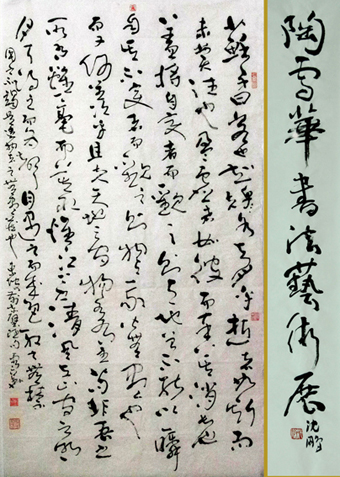 陶雪華書法藝術展
沈鹏
蘇子曰客亦知夫水與月乎逝者如斯而
未嘗往也盈虛者如彼而卒莫消長也
蓋將自其變者而觀之則天地曾不能以一瞬
自其不變者而觀之則物與我皆無盡也
而又何羨乎且夫天地之間物各有主苟非吾之
所有雖一毫而莫取惟江上之清風與山間之明
月耳得之而為聲目遇之而成色取之無禁
用之不竭是造物者之無盡藏也